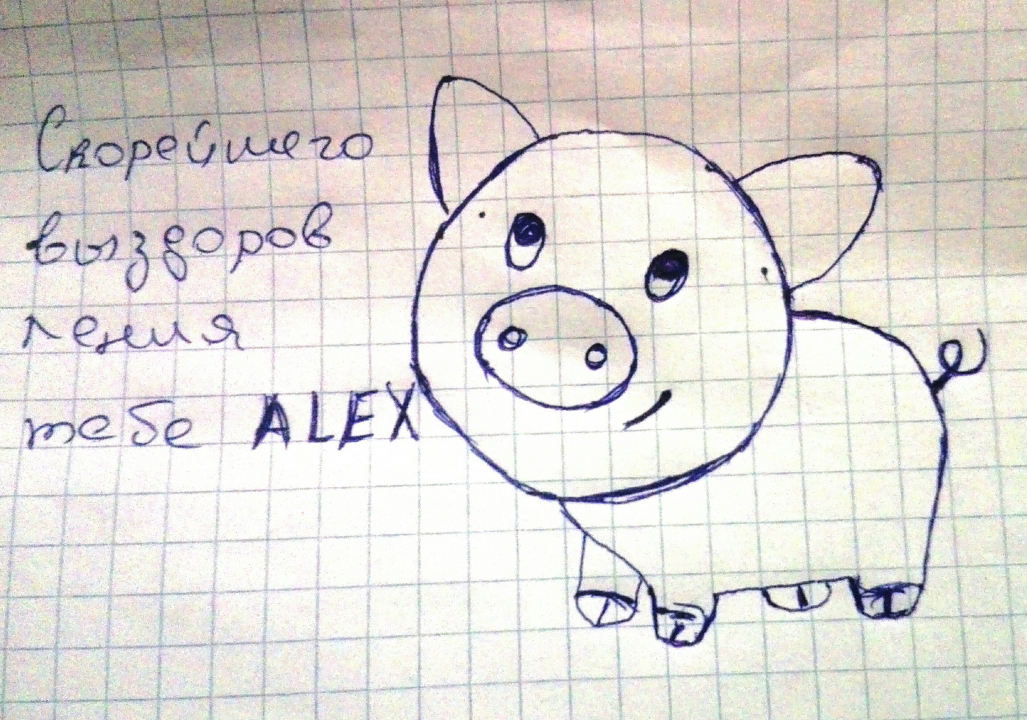 Скорейшего
выздоров
ления
тебе ALEX